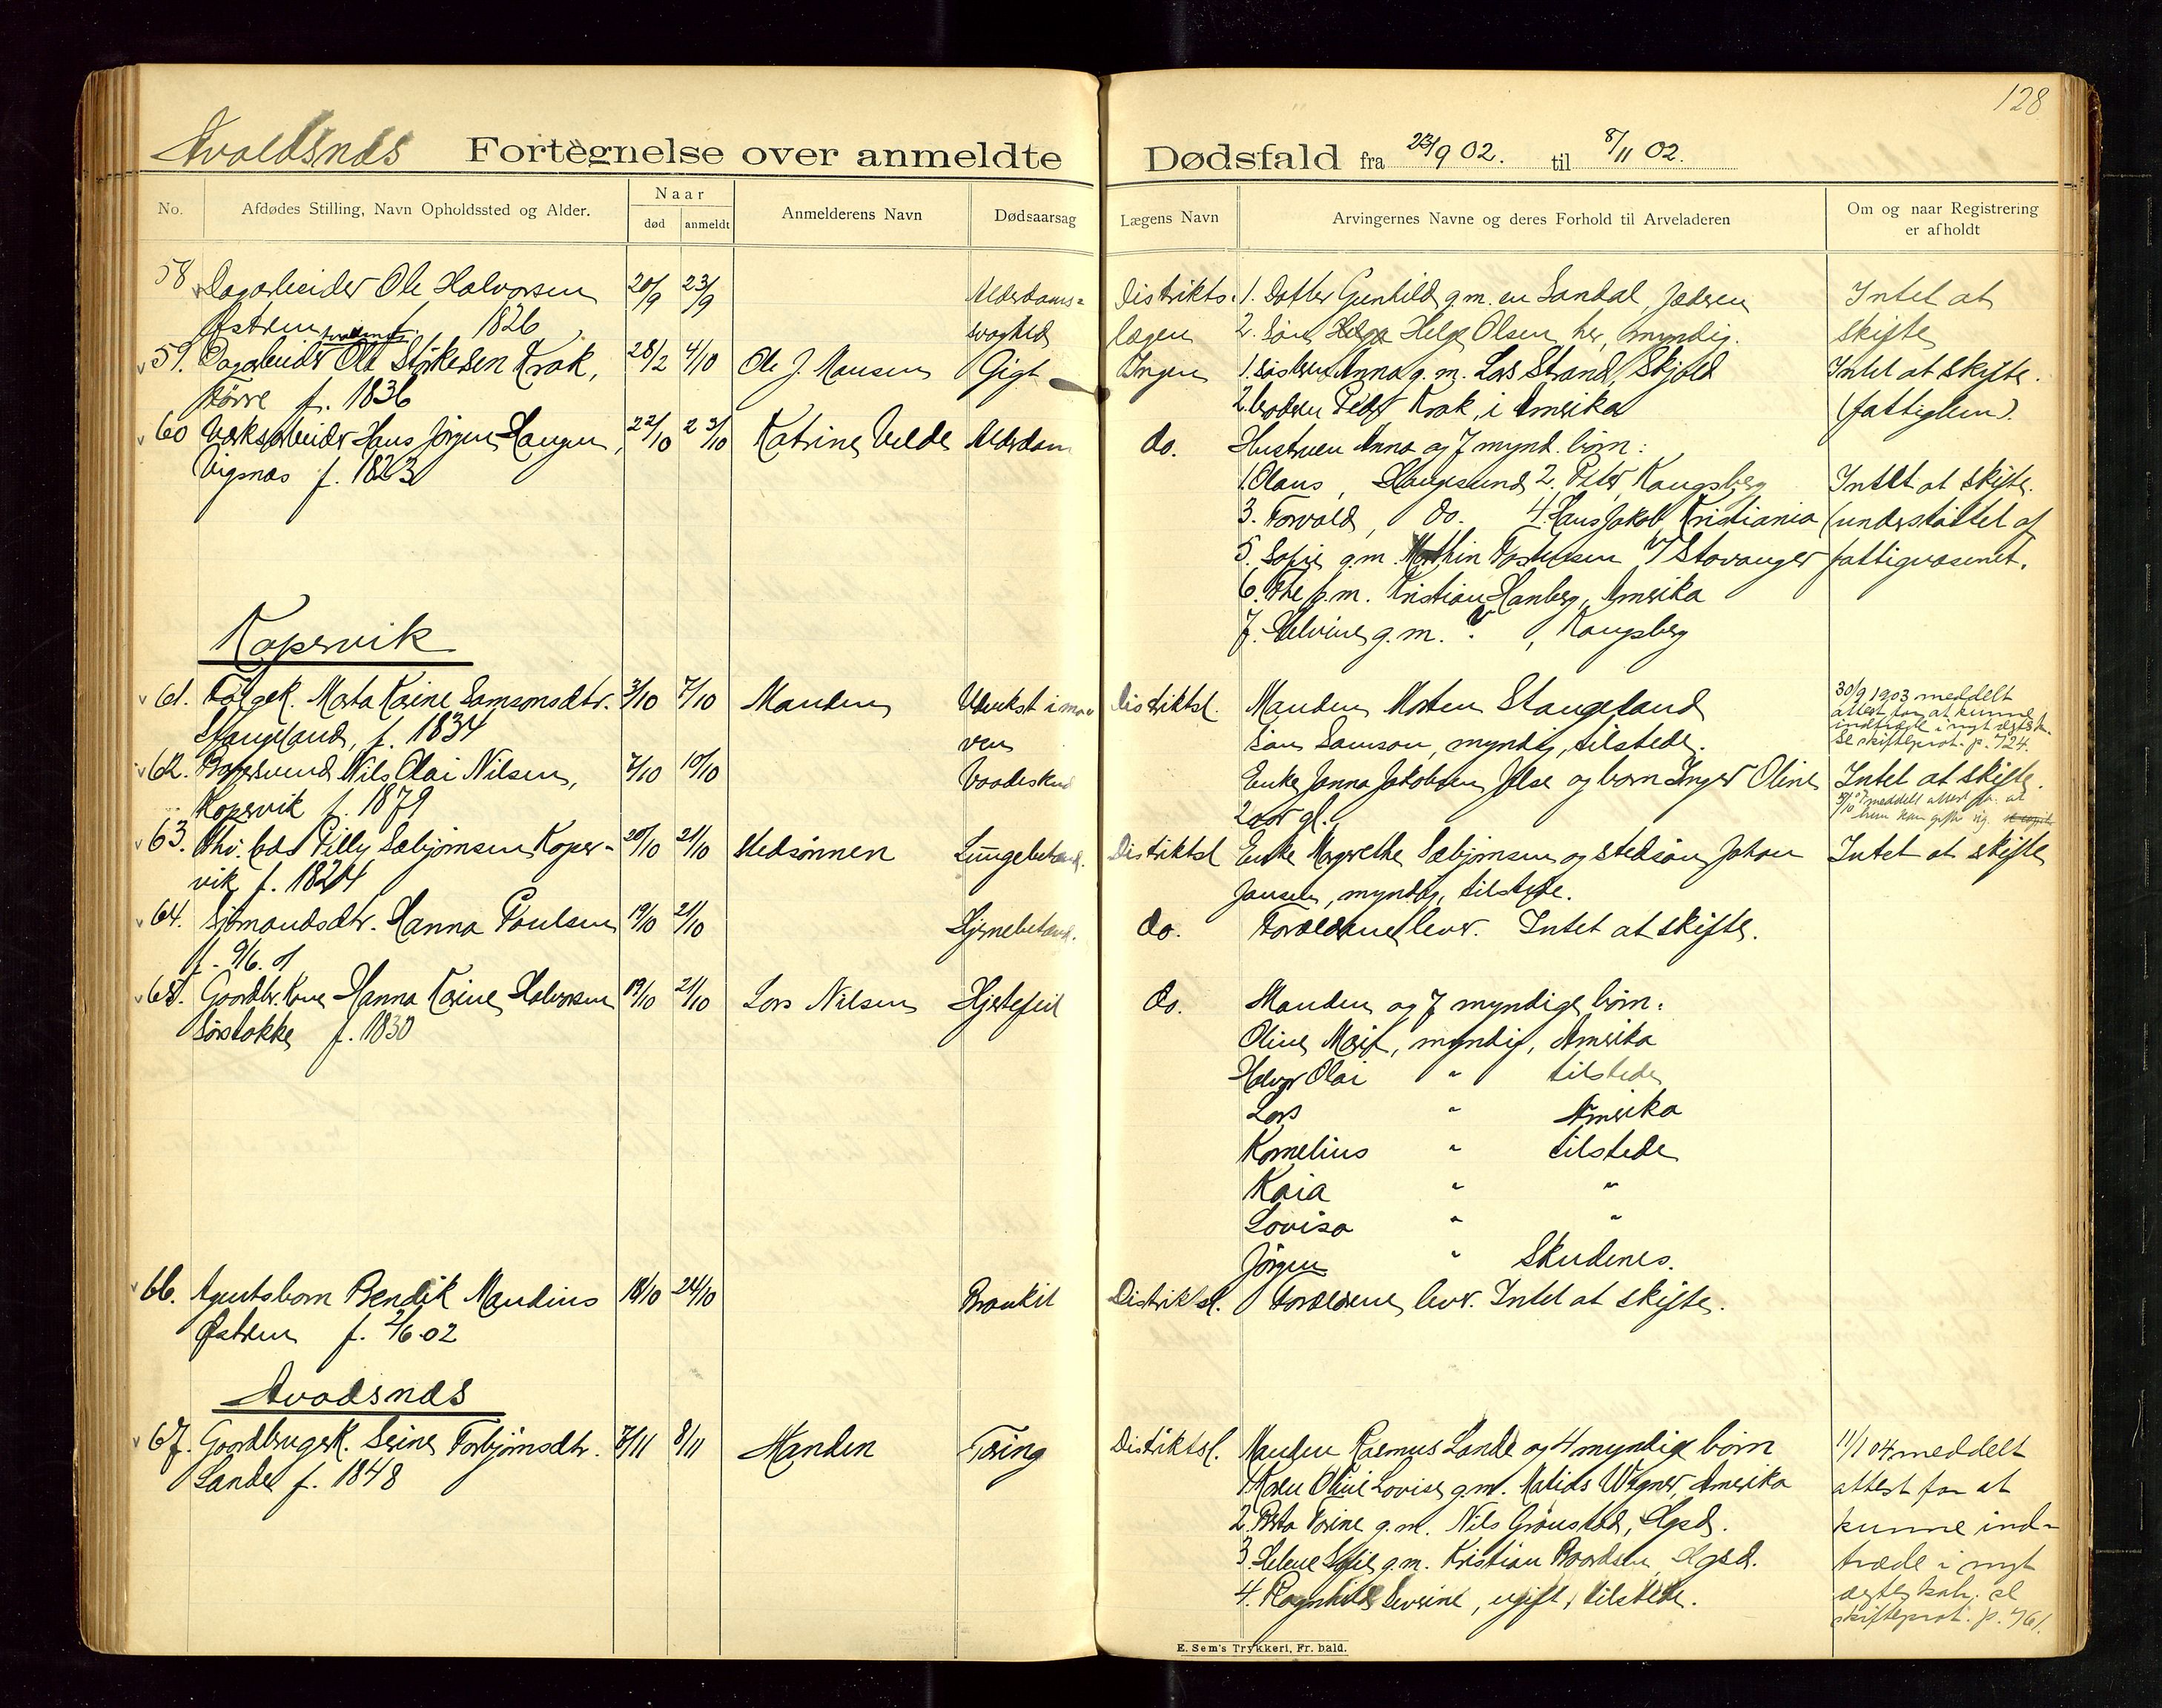 128
Avaldsnes Fortegnelse over anmeldte Dødsfald fra 23/9 02. til 8/11 02.
No.
Afdødes Stilling, Navn Opholdssted og Alder.
Naar
død
anmeldt
Anmelderens Navn
Dødsaarsag
Lægens Navn
Arvingernes Navne og deres Forhold til Arveladeren
Om og naar Registrering
er afholdt
58 Dagarbeider Ole Halvorsen 20/9 23/9 Alderdoms= Distrikts. 1. Datter Gunhild g.m. en Sandal, Jæderen Intet at
Østrem f. 1826 svaghed lægen 2. Søn Helge Olsen her, myndig. skifte
59. Dagarbeider Ole Størkersen Krak, 28/2 4/10 Ole J. Mansen Gigt Ingen 1. Søsteren Anna g.m. Lars Strand, Skjold Intet at skifte.
Større f. 1836 2. broderen Peder Krak, i Amerika (fattiglem).
60 Værksarbeider Hans Jørgen Haugen, 22/10 23/10 Katrine Velde Alderdom do. Hustruen Anna og 7 mynd. børn:
Vigsnæs f. 1823 1. Olaus, Haugesund 2. Peter, Kongsberg Intet at skifte.
3. Torvald, do. 4. Hans Jakob, Kristiania (understøttet af
5. Sofie g.m. Mathin Torstensen, Stavanger fattigvæsenet.
6. g.m. Kristian Hanberg, Amerika
7. Elvine g.m. ? , Kongsberg
Kopervik
61. Marta Karine Samsonsdtr. 3/10 7/10 Manden Udvekst i ma= Distriktsl. Manden Morten Stangeland 30/9 1903 meddelt
Stangeland, f. 1834 ven Søn Samson, myndig, tilstede. attest for at kunne
indtræde i nyt ægtesk.
Se skifteprot. p. 724.
62. Nils Olai Nilsen, 7/10 10/10 Vaadeskud Enke Janna Jakobsen Jelse og barn Inger Oline Intet at skifte.
Kopervik f. 1879 2 aar gl. meddelt attest for at
hun kan gifte sig.
63. Pilly Sæbjørnsen, Koper- 20/10 21/10 Stedsønnen Lungebetænd. Distriktsl Enke Margrethe Sæbjørnsen og stedsøn Johan Intet at skifte
vik f. 1824 Jansen, myndig, tilstede.
64. Sjømandsdtr. Hanna Poulsen 19/10 21/10 Hjernebetænd. do. Forældrene lever. Intet at skifte.
f. 9/6. 01
65. Gaardbr. Kone Hanna Karine Halvorsen 19/10 21/10 Lars Nilsen Hjertefeil do. Manden og 7 myndige børn:
Sørstokke f. 1830 Oline Marit, myndig, Amerika
Halvor Olai " tilstede
Lars " Amerika
Kornelius " tilstede
Kaia " "
Lovisa " "
Jørgen " Skudenes.
66. Agentsbarn Bendik Mandius 18/10 24/10 Bronkit Distriktsl. Forældrene lever. Intet at skifte.
Østrem f. 2/6.02
Avadsnes
67. Gaardbrugerk. Serine Torbjørnsdtr. 7/11 8/11 Manden Tæring Distriktsl. Manden Rasmus Lande og 4 myndige børn 11/1 04 meddelt
Lande f. 1848 1. Karen Oline Lovise g.m. Matias Wagner, Amerika attest for at
2. Berta Torine g.m. Nils Grønstad, Hgsd. kunne ind-
3. Helene Sofie g.m. Kristian Baardsen, Hgsd. træde i nyt
4. Ragnhild Severine, ugift, tilstede. ægteskab. se
skifteprot. p. 761.
E. Sem's Trykkeri, Fr.hald.